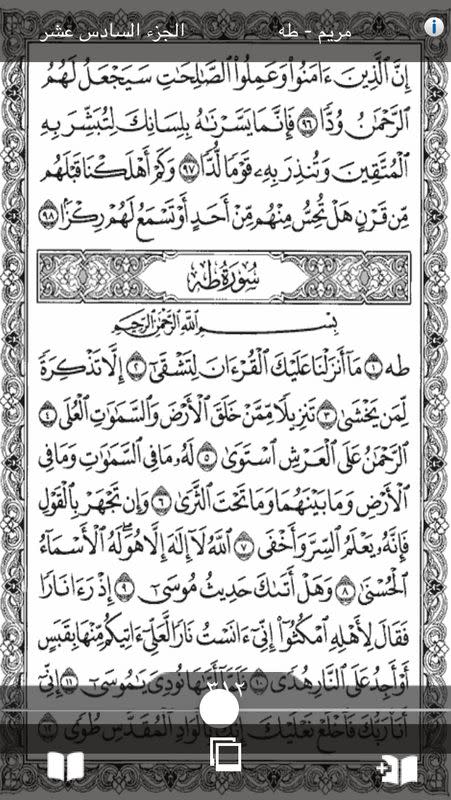 الجزء السادس عشر
مريم - طه
إِنَّ ٱلَّذِينَ ءَامَنُواْ وَعَمِلُواْ ٱلصَّٰلِحَٰتِ سَيَجْعَلُ لَهُمُ
ٱلرَّحْمَٰنُ وُدًّا ٩٦ فَإِنَّمَا يَسَّرْنَٰهُ بِلِسَانِكَ لِتُبَشِّرَ بِهِ
ٱلْمُتَّقِينَ وَتُنذِرَ بِهِۦ قَوْمًا لُّدًّا ٩٧ وَكَمْ أَهْلَكْنَا قَبْلَهُم
مِّن قَرْنٍ هَلْ تُحِسُّ مِنْهُم مِّنْ أَحَدٍ أَوْ تَسْمَعُ لَهُمْ رِكْزًۢا ٩٨
سُورَةُ طه
بِسْمِ ٱللَّهِ ٱلرَّحْمَٰنِ ٱلرَّحِيمِ
طه ١ مَآ أَنزَلْنَا عَلَيْكَ ٱلْقُرْءَانَ لِتَشْقَىٰٓ ٢ إِلَّا تَذْكِرَةً
لِّمَن يَخْشَىٰ ٣ تَنزِيلًا مِّمَّنْ خَلَقَ ٱلْأَرْضَ وَٱلسَّمَٰوَٰتِ ٱلْعُلَى ٤
ٱلرَّحْمَٰنُ عَلَى ٱلْعَرْشِ ٱسْتَوَىٰ ٥ لَهُۥ مَا فِى ٱلسَّمَٰوَٰتِ وَمَا فِى
ٱلْأَرْضِ وَمَا بَيْنَهُمَا وَمَا تَحْتَ ٱلثَّرَىٰ ٦ وَإِن تَجْهَرْ بِٱلْقَوْلِ
فَإِنَّهُۥ يَعْلَمُ ٱلسِّرَّ وَأَخْفَى ٧ ٱللَّهُ لَآ إِلَٰهَ إِلَّا هُوَ لَهُ ٱلْأَسْمَآءُ
ٱلْحُسْنَىٰ ٨ وَهَلْ أَتَىٰكَ حَدِيثُ مُوسَىٰٓ ٩ إِذْ رَءَا نَارًا
فَقَالَ لِأَهْلِهِ ٱمْكُثُوٓاْ إِنِّىٓ ءَانَسْتُ نَارًا لَّعَلِّىٓ ءَاتِيكُم مِّنْهَا بِقَبَسٍ
أَوْ أَجِدُ عَلَى ٱلنَّارِ هُدًى ١٠ فَلَمَّآ أَتَىٰهَا نُودِىَ يَٰمُوسَىٰٓ ١١ إِنِّىٓ
٣١٢
أَنَا۠ رَبُّكَ فَٱخْلَعْ نَعْلَيْكَ إِنَّكَ بِٱلْوَادِ ٱلْمُقَدَّسِ طُوًى ١٢